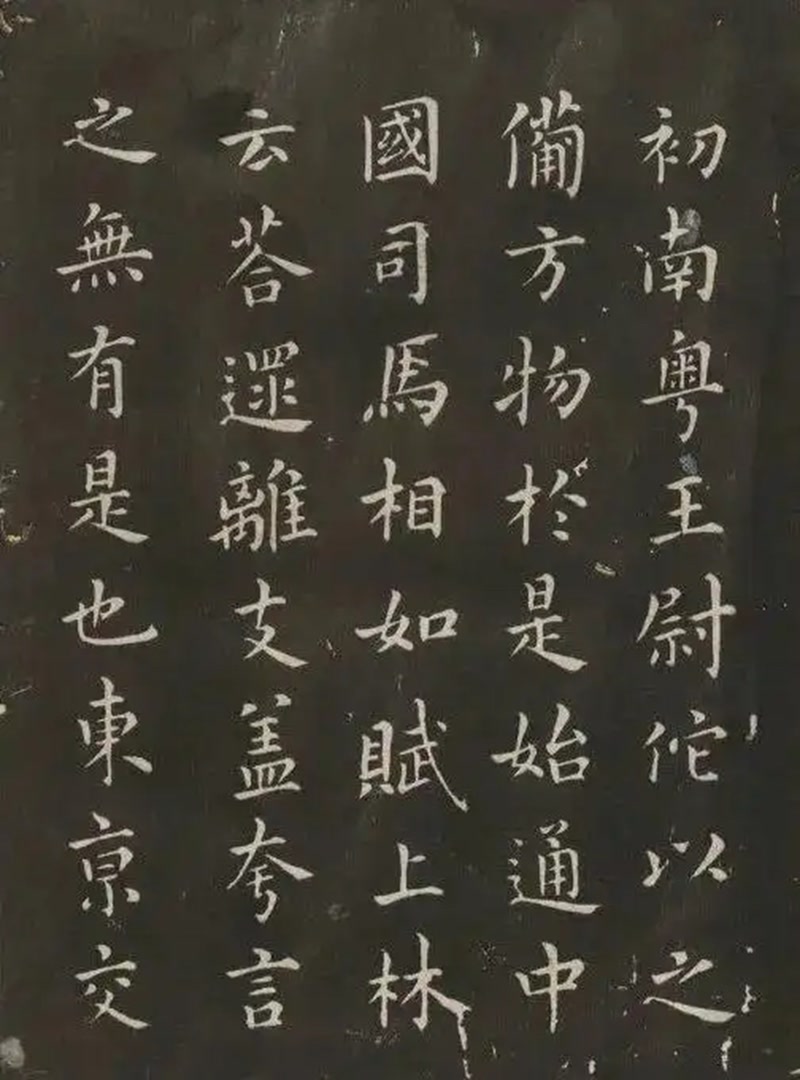 初南粤王尉佗以之
備方物於是始通中
國司馬相如賦上林
云荅遝離支盖夸言
之無有是也東京交